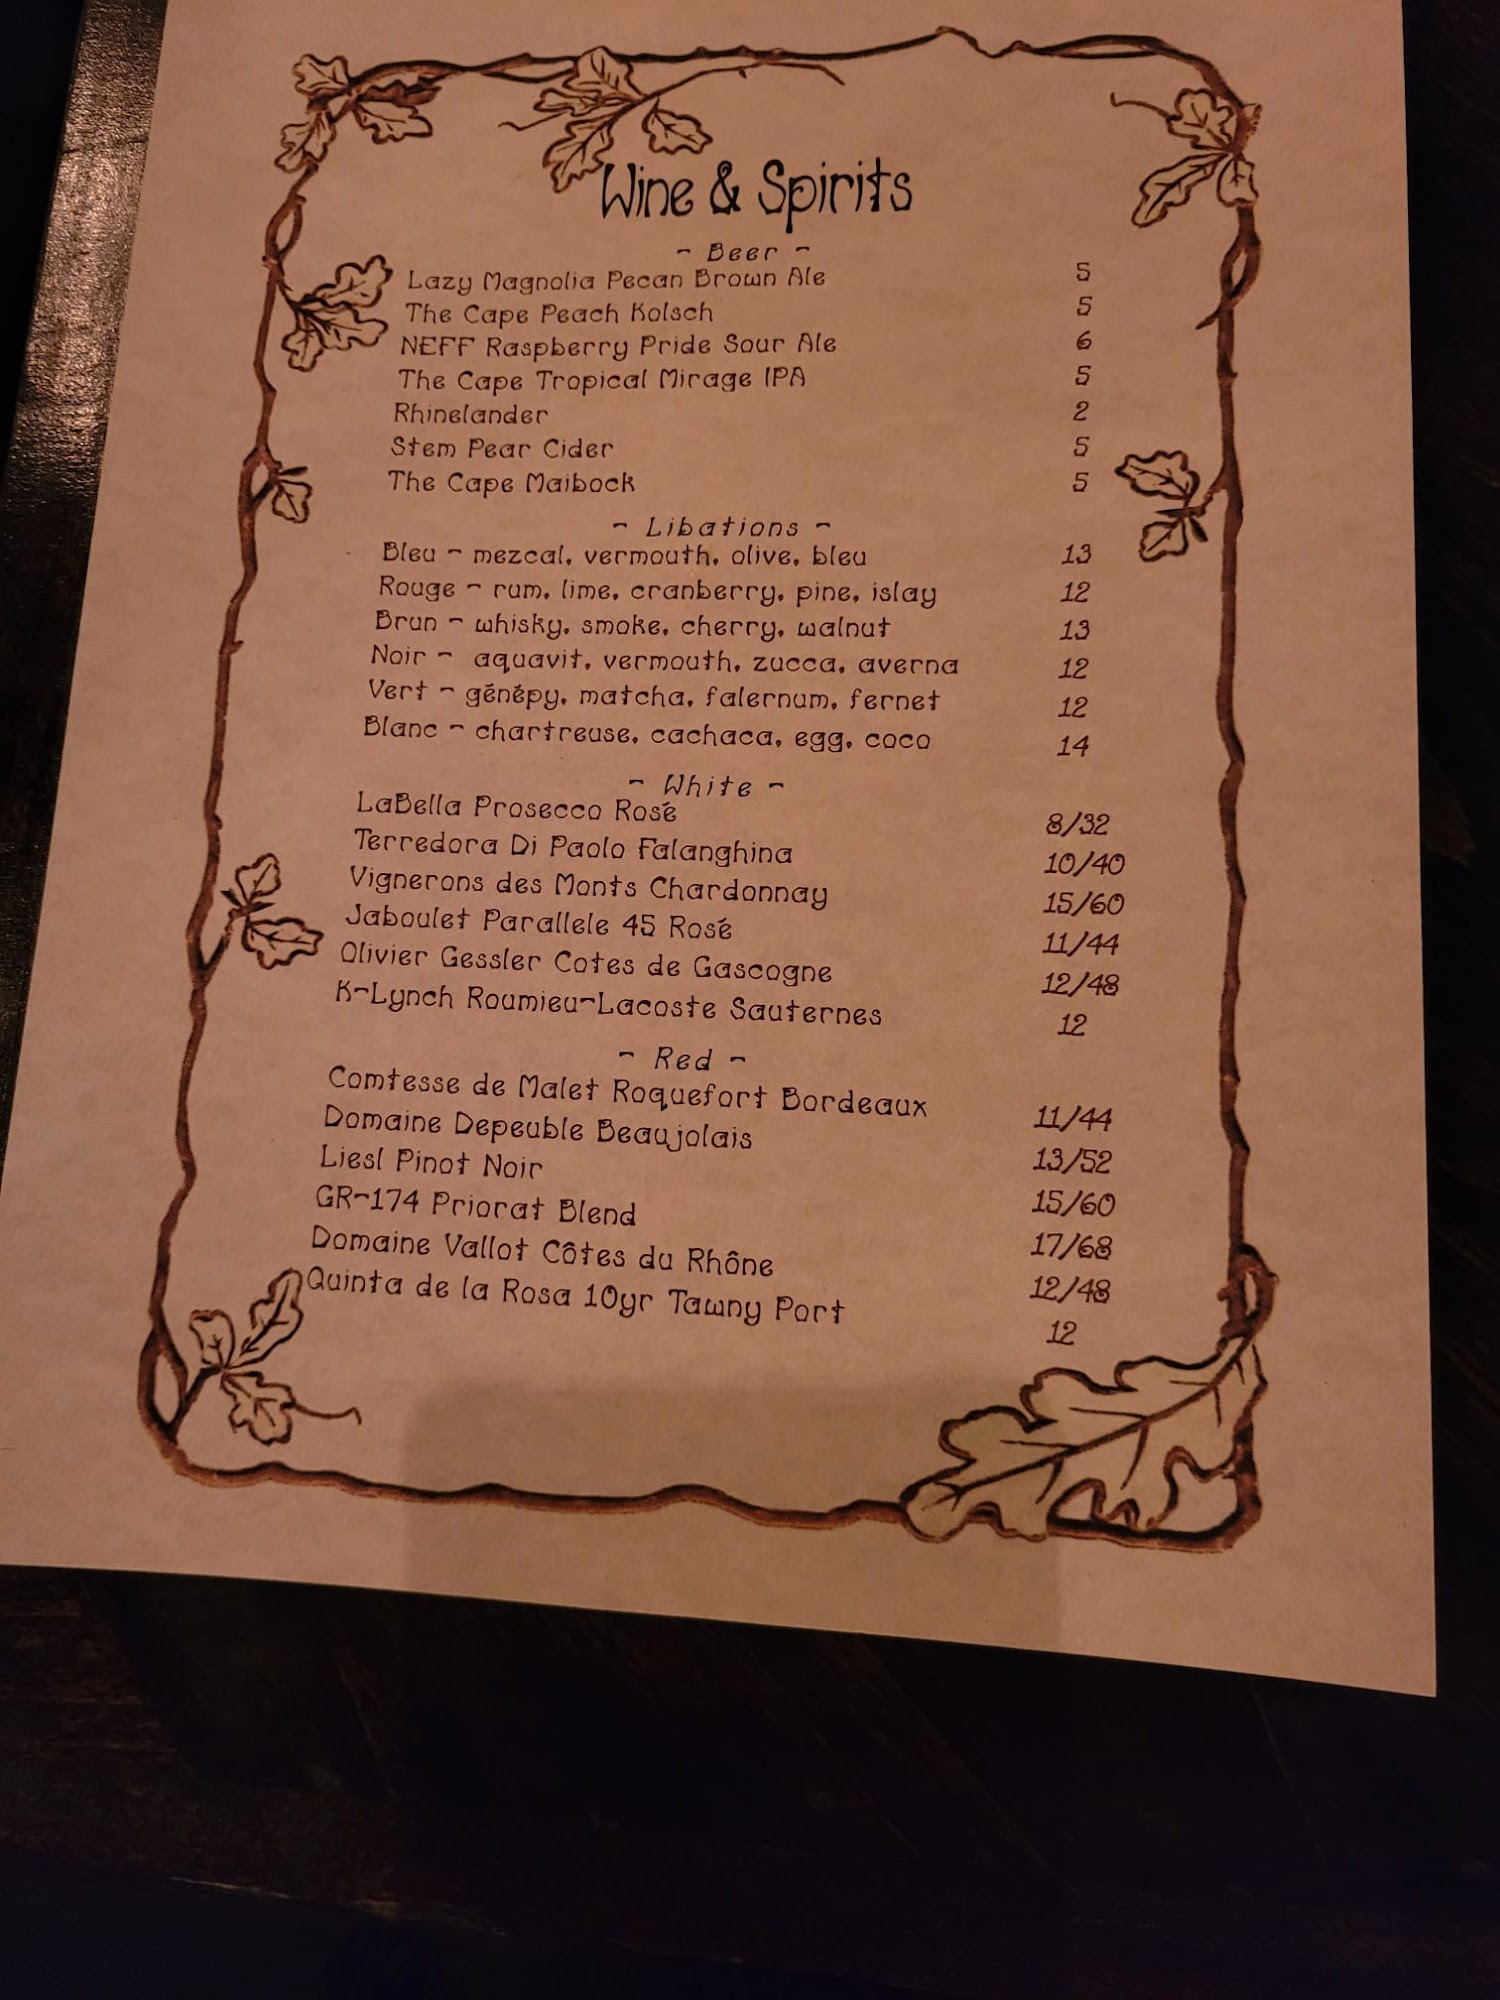 Wine & Spirits
~ Beer ~
Lazy Magnolia Pecan Brown Ale 5
The Cape Peach Kolsch 5
NEFF Raspberry Pride Sour Ale 6
The Cape Tropical Mirage IPA 5
Rhinelander 2
Stem Pear Cider 5
The Cape Maibock 5
~ Libations ~
Bleu ~ mezcal, vermouth, olive, bleu 13
Rouge ~ rum, lime, cranberry, pine, islay 12
Brun ~ whisky, smoke, cherry, walnut 13
Noir ~ aquavit, vermouth, zucca, averna 12
Vert ~ génépy, matcha, falernum, fernet 12
Blanc ~ chartreuse, cachaca, egg, coco 14
~ White ~
LaBella Prosecco Rosé 8/32
Terredora Di Paolo Falanghina 10/40
Vignerons des Monts Chardonnay 15/60
Jaboulet Parallele 45 Rosé 11/44
Olivier Gessler Cotes de Gascogne 12/48
K~Lynch Roumieu~Lacoste Sauternes 12
~ Red ~
Comtesse de Malet Roquefort Bordeaux 11/44
Domaine Depeuble Beaujolais 13/52
Liesl Pinot Noir 15/60
GR~174 Priorat Blend 17/68
Domaine Vallot Côtes du Rhône 12/48
Quinta de la Rosa 10yr Tawny Port 12